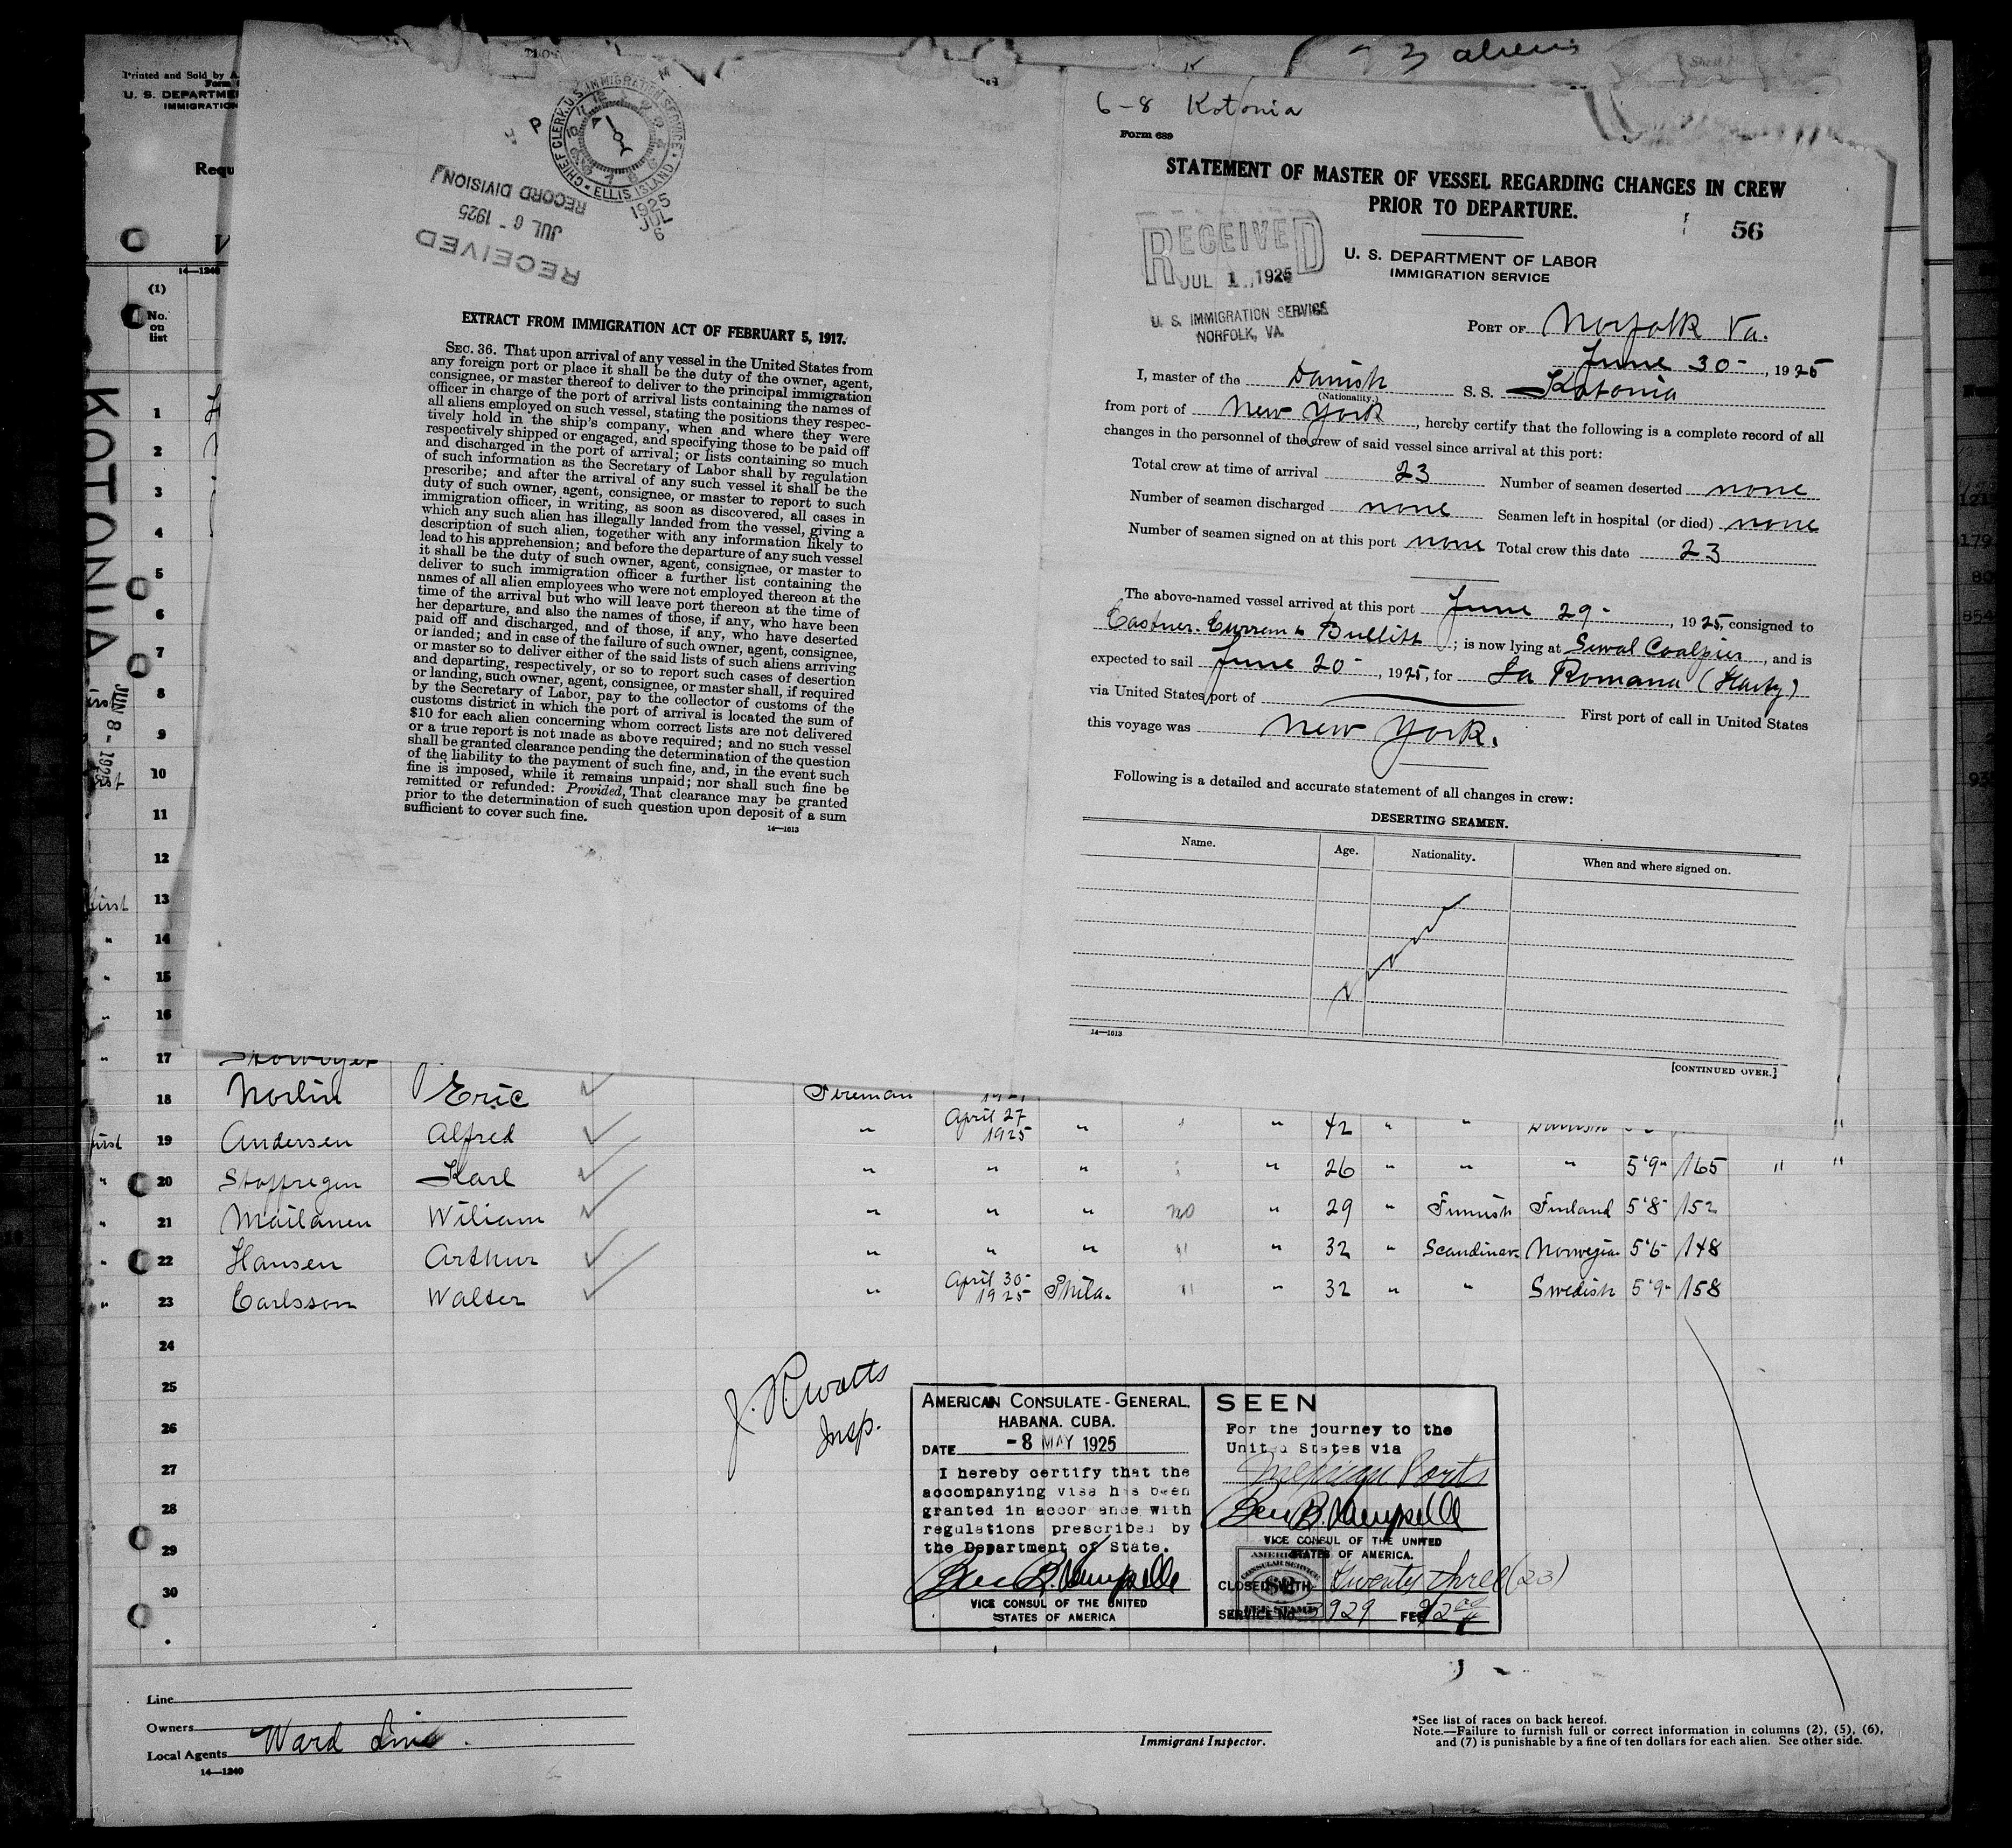 3 aliens
Printed and Sold by A.
Form
U. S. DEPARTME
IMMIGRATION
Requ
V
14—1240
(1)
No.
on
list
KOTONIA
JUN 8 - 1925
CHIEF CLERK, U.S. IMMIGRATION SERVICE
ELLIS ISLAND
1925
JUL 6
P M
RECEIVED
JUL 6 - 1925
RECORD DIVISION
EXTRACT FROM IMMIGRATION ACT OF FEBRUARY 5, 1917.
SEC. 36. That upon arrival of any vessel in the United States from
any foreign port or place it shall be the duty of the owner, agent,
consignee, or master thereof to deliver to the principal immigration
officer in charge of the port of arrival lists containing the names of
all aliens employed on such vessel, stating the positions they respec-
tively hold in the ship's company, when and where they were
respectively shipped or engaged, and specifying those to be paid off
and discharged in the port of arrival; or lists containing so much
of such information as the Secretary of Labor shall by regulation
prescribe; and after the arrival of any such vessel it shall be the
duty of such owner, agent, consignee, or master to report to such
immigration officer, in writing, as soon as discovered, all cases in
which any such alien has illegally landed from the vessel, giving a
description of such alien, together with any information likely to
lead to his apprehension; and before the departure of any such vessel
it shall be the duty of such owner, agent, consignee, or master to
deliver to such immigration officer a further list containing the
names of all alien employees who were not employed thereon at the
time of the arrival but who will leave port thereon at the time of
her departure, and also the names of those, if any, who have been
paid off and discharged, and of those, if any, who have deserted
or landed; and in case of the failure of such owner, agent, consignee,
or master so to deliver either of the said lists of such aliens arriving
and departing, respectively, or so to report such cases of desertion
or landing, such owner, agent, consignee, or master shall, if required
by the Secretary of Labor, pay to the collector of customs of the
customs district in which the port of arrival is located the sum of
$10 for each alien concerning whom correct lists are not delivered
or a true report is not made as above required; and no such vessel
shall be granted clearance pending the determination of the question
of the liability to the payment of such fine, and, in the event such
fine is imposed, while it remains unpaid; nor shall such fine be
remitted or refunded: Provided, That clearance may be granted
prior to the determination of such question upon deposit of a sum
sufficient to cover such fine.
14—1613
6-8 Kotonia
Form 689
STATEMENT OF MASTER OF VESSEL REGARDING CHANGES IN CREW
PRIOR TO DEPARTURE.
56
RECEIVED
JUL 1 1925
U. S. IMMIGRATION SERVICE
NORFOLK, VA.
U. S. DEPARTMENT OF LABOR
IMMIGRATION SERVICE
PORT OF Norfolk Va.
June 30-, 1925
I, master of the Danish S. S. Kotonia
(Nationality.)
from port of New York, hereby certify that the following is a complete record of all
changes in the personnel of the crew of said vessel since arrival at this port:
Total crew at time of arrival 23 Number of seamen deserted none
Number of seamen discharged none Seamen left in hospital (or died) none
Number of seamen signed on at this port none Total crew this date 23
The above-named vessel arrived at this port June 29-, 1925, consigned to
Castner. Curren & Bullitt; is now lying at Sewal Coalpier, and is
expected to sail June 20-, 1925, for La Romana (Haity)
via United States port of First port of call in United States
this voyage was New York.
Following is a detailed and accurate statement of all changes in crew:
DESERTING SEAMEN.
Name. Age. Nationality. When and where signed on.
14—1613
[CONTINUED OVER.]
1
2
3
4
5
6
7
8
9
10
11
12
first 13
" 14
" 15
" 16
" 17
18 Norlin Eric Fireman
first 19 Andersen Alfred " April 27 1925 " " 42 " " Danish
" 20 Stoffregen Karl " " " " 26 " " " 5'9" 165 " "
" 21 Mailanen Wiliam " " " no " 29 " Finnish Finland 5'8" 152
" 22 Hansen Arthur " " " " " 32 " Scandinav. Norwegian 5'6" 148
" 23 Carlsson Walter " April 30- 1925 Phila. " " 32 " " Swedish 5'9" 158
24
25
26
27
28
29
30
J. R. Watts
Insp.
AMERICAN CONSULATE-GENERAL.
HABANA. CUBA.
DATE -8 MAY 1925
I hereby certify that the
accompanying visa has been
granted in accordance with
regulations prescribed by
the Department of State.
VICE CONSUL OF THE UNITED
STATES OF AMERICA
SEEN
For the journey to the
United States via
Mexican Ports
VICE CONSUL OF THE UNITED
STATES OF AMERICA.
AMERICAN
CONSULAR SERVICE
$2
FEE STAMP
CLOSED WITH Twenty three (23)
SERVICE No. 3929 FEE $2.00
Line
Owners
Local Agents Ward Line.
14—1240
Immigrant Inspector.
*See list of races on back hereof.
Note.—Failure to furnish full or correct information in columns (2), (5), (6),
and (7) is punishable by a fine of ten dollars for each alien. See other side.